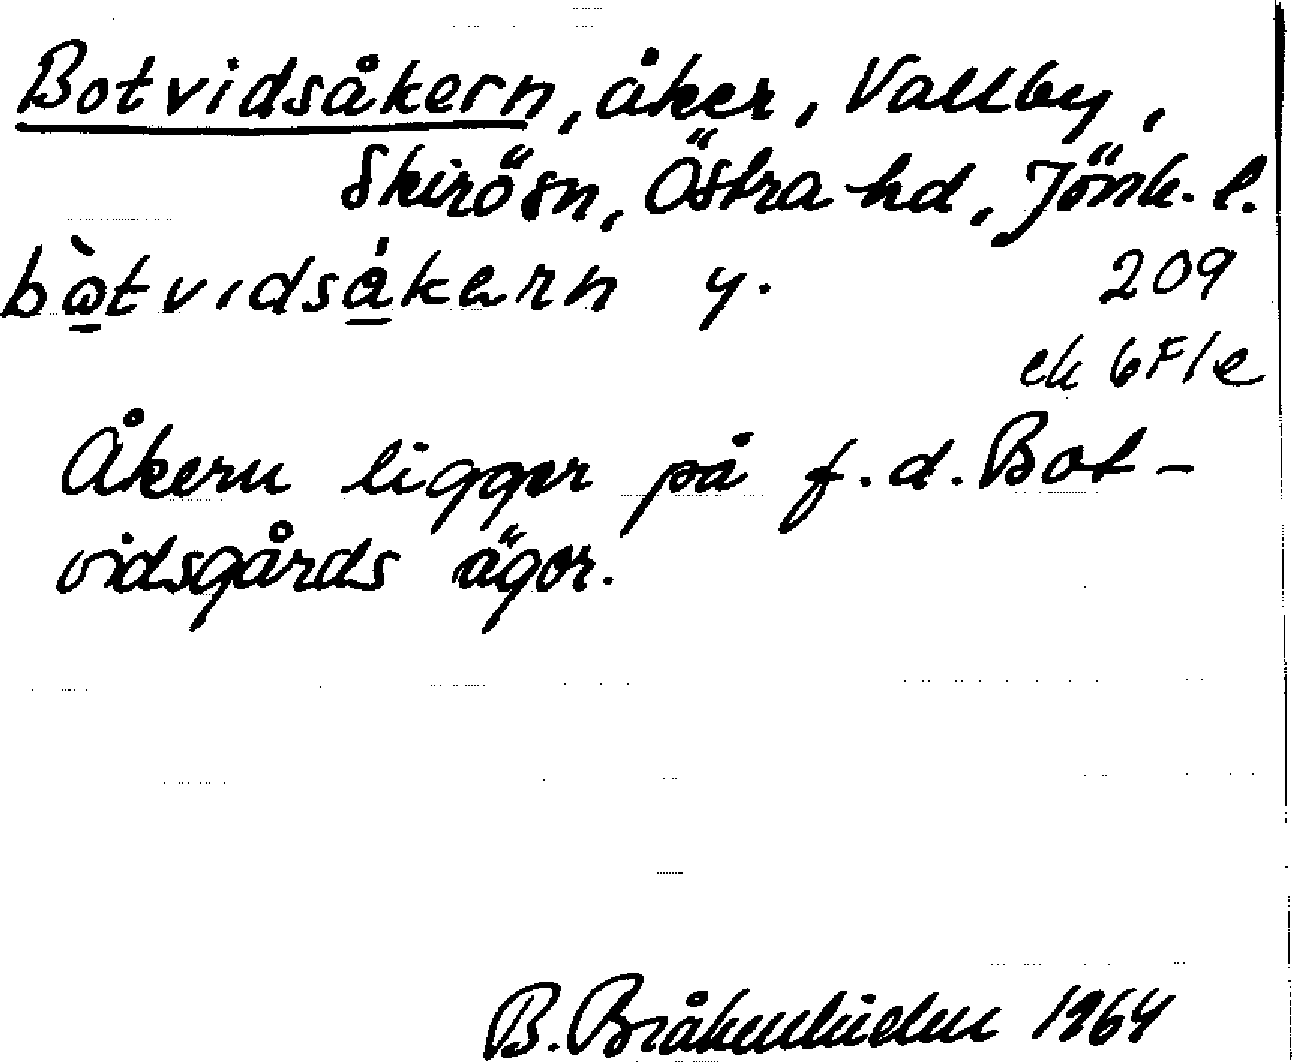 Botvidsåkern, åker, Vallby,
Skirö sn, Östra hd, Jönk. l.
bòtvidsåkern y. 209
ek 6F1e
Åkern ligger på f.d. Bot-
vidsgårds ägor.
B. Bråkenhielm 1964